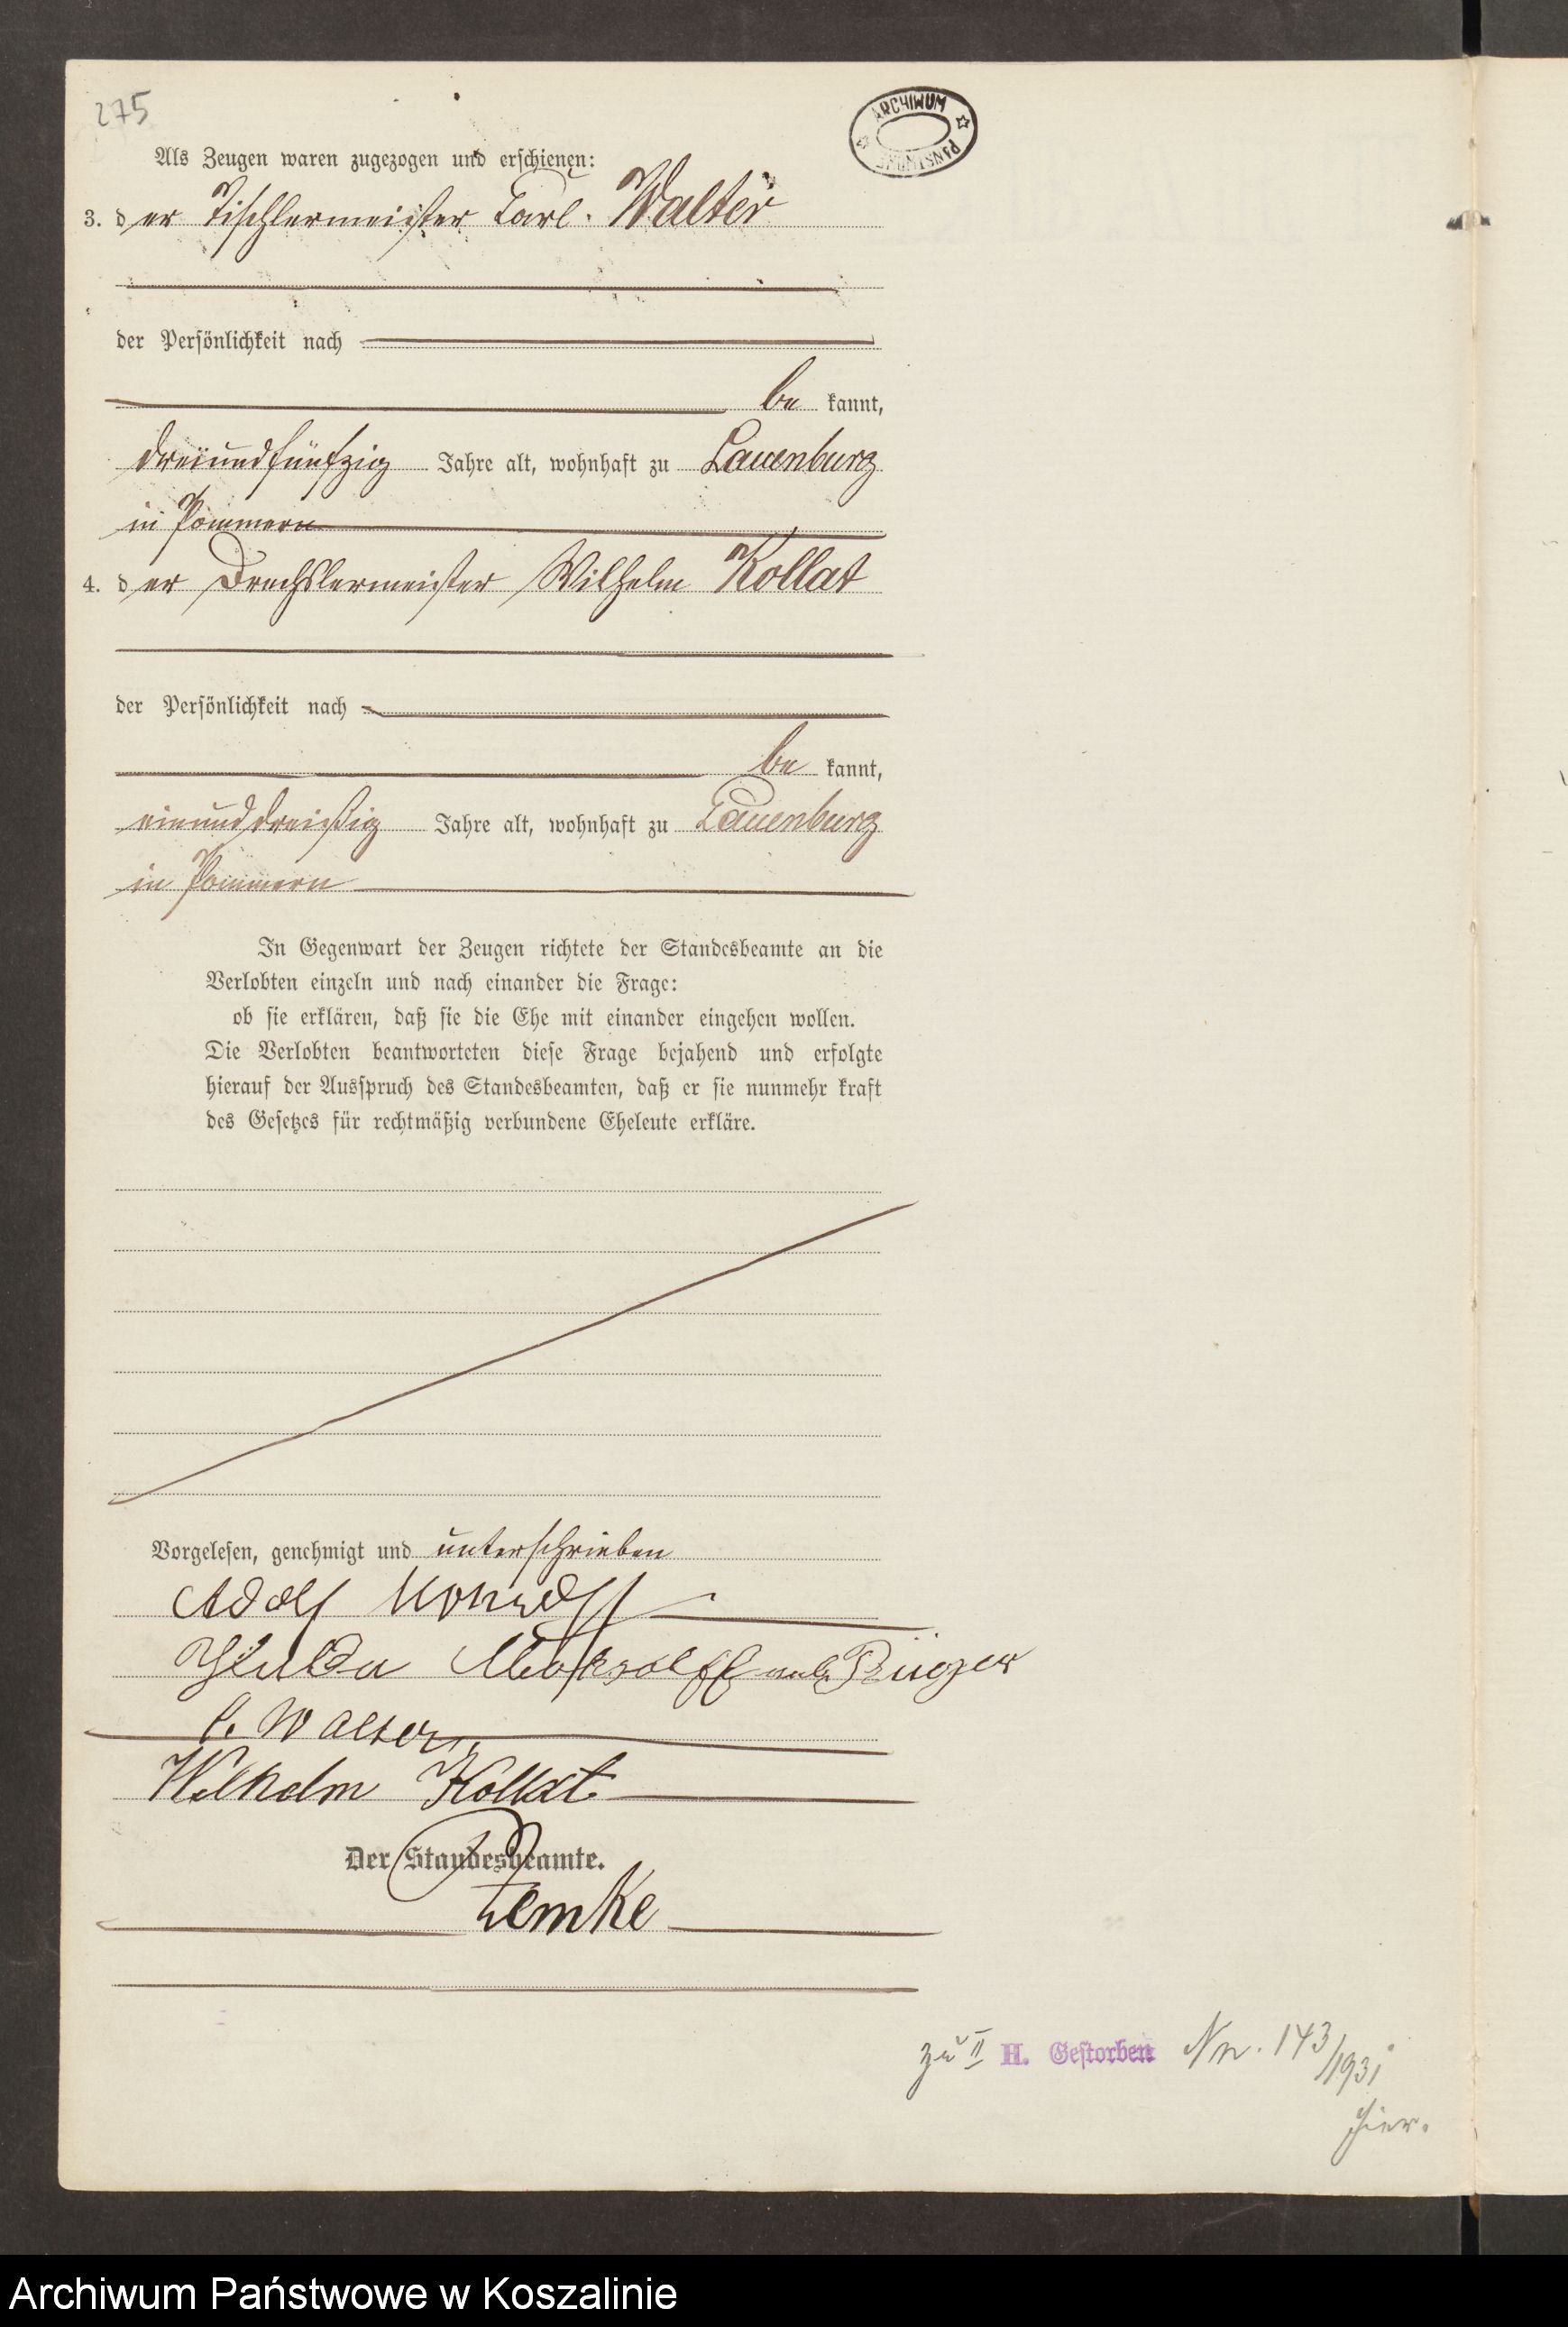 275
ARCHIWUM
Als Zeugen waren zugezogen und erschienen:
3. der Tischlermeister Carl Walter
der Persönlichkeit nach
be kannt,
dreiundfünfzig Jahre alt, wohnhaft zu Lauenburg
in Pommern
4. der Drechslermeister Wilhelm Kollat
der Persönlichkeit nach
be kannt,
einunddreißig Jahre alt, wohnhaft zu Lauenburg
in Pommern
In Gegenwart der Zeugen richtete der Standesbeamte an die
Verlobten einzeln und nach einander die Frage:
ob sie erklären, daß sie die Ehe mit einander eingehen wollen.
Die Verlobten beantworteten diese Frage bejahend und erfolgte
hierauf der Ausspruch des Standesbeamten, daß er sie nunmehr kraft
des Gesetzes für rechtmäßig verbundene Eheleute erkläre.
Vorgelesen, genehmigt und unterschrieben
Adolf
C. Walter
Wilhelm Kollat
Der Standesbeamte.
Lemke
zu II H. Gestorben Nr. 143/1931
hier.
Archiwum Państwowe w Koszalinie